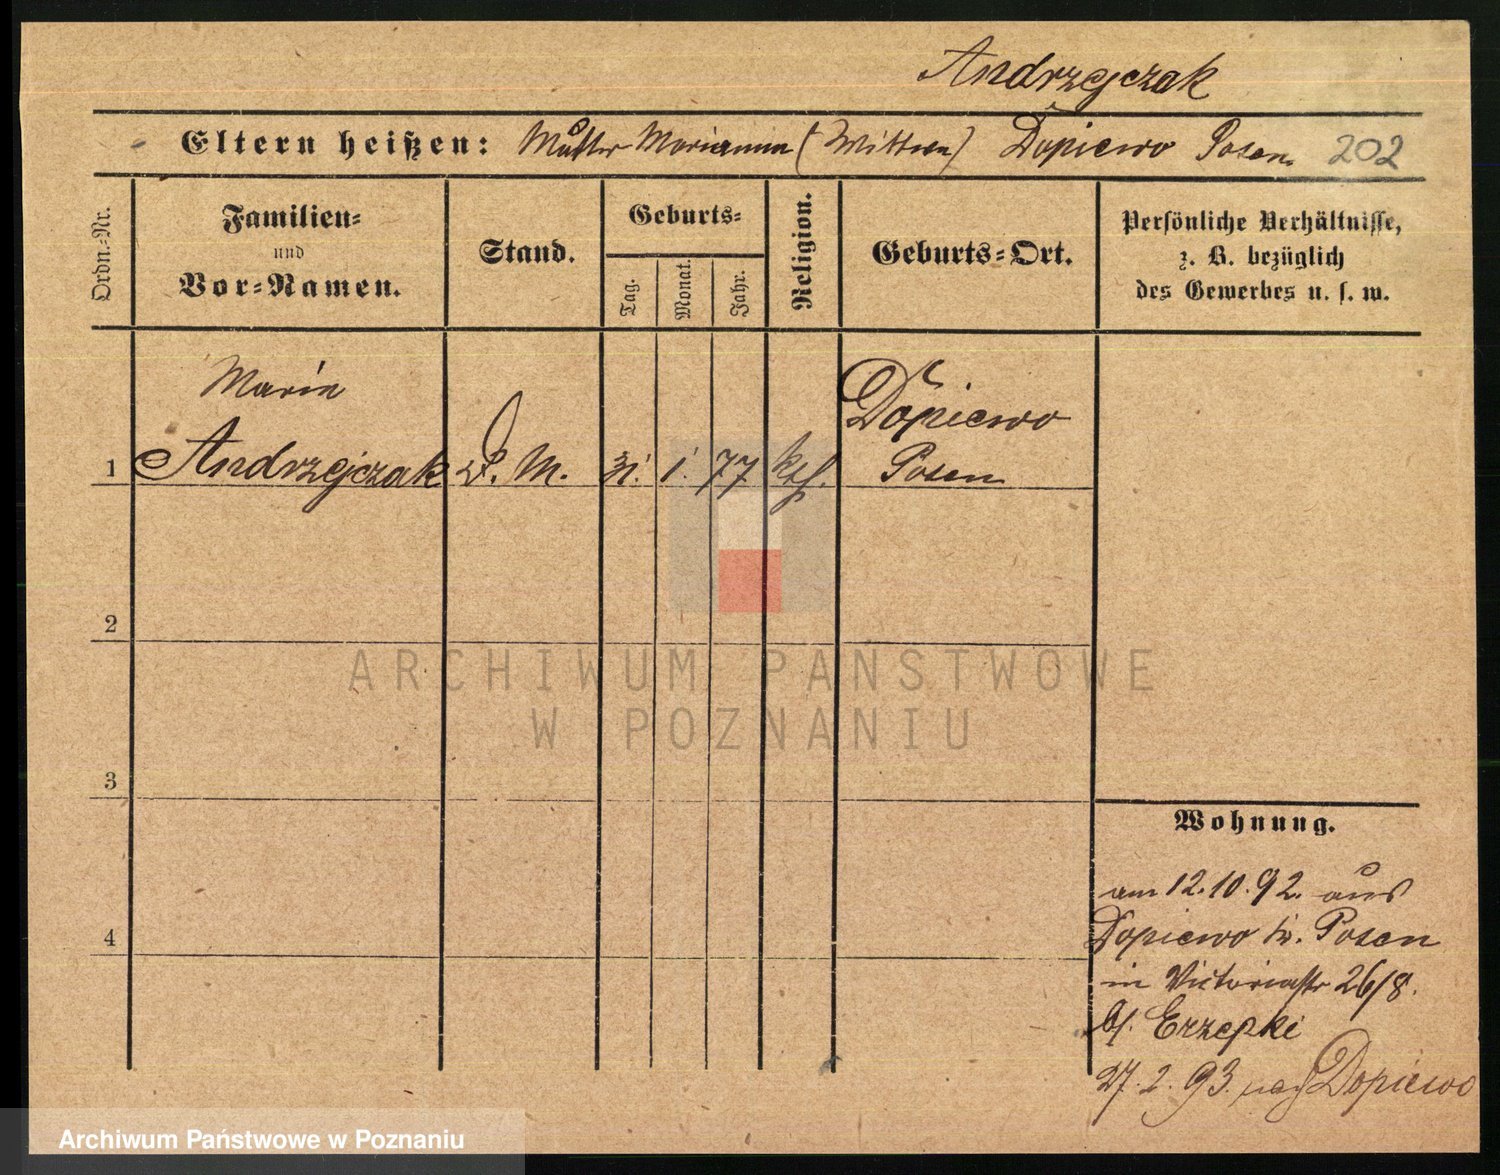 Andrzejczak
Eltern heißen: Mutter Marianna (Wittwe) Dopiewo Posen 202
Ordn.-Nr.
Familien- und Vor-Namen.
Stand.
Geburts-
Tag.
Monat.
Jahr.
Religion.
Geburts-Ort.
Persönliche Verhältnisse,
z. B. bezüglich
des Gewerbes u. s. w.
Marie
1 Andrzejczak D. M. 31. 1. 77 kth. Dopiewo
Posen
2
3
4
ARCHIWUM PAŃSTWOWE
W POZNANIU
Wohnung.
am 12.10.92. aus
Dopiewo Kr. Posen
in Victoriastr 26/8.
b/. Erzepki
27. 2. 93. nach Dopiewo
Archiwum Państwowe w Poznaniu